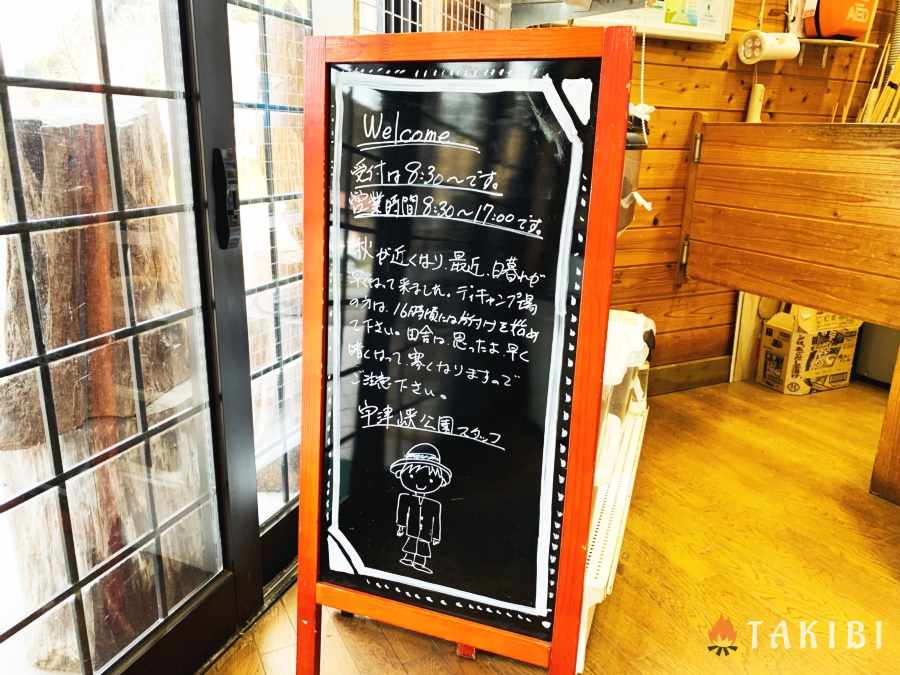 Welcome
受付は8:30〜です。
営業時間8:30〜17:00です。
秋が近くなり、最近、日暮れが
早くなって来ました。デイキャンプ場
の方は、16時頃には片付けを始め
て下さい。田舎は、思ったより早く
暗くなって、寒くなりますので
ご注意下さい。
宇津峡公園スタッフ
AED
TAKIBI